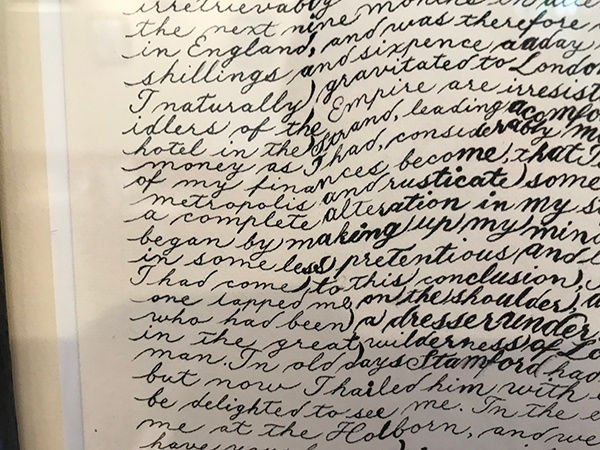 irretrievably
the next nine months in atte
in England, and was therefore
shillings and sixpence a day
I naturally gravitated to London
idlers of the Empire are irresist
hotel in the Strand, leading a comfo
money as I had, considerably mo
of my finances become, that I
metropolis and rusticate some
a complete alteration in my s
began by making up my mind
in some less pretentious and l
I had come to this conclusion, I
one tapped me on the shoulder, a
who had been a dresser under
in the great wilderness of Lo
man. In old days Stamford had
but now I hailed him with e
be delighted to see me. In the e
me at the Holborn, and we
have you